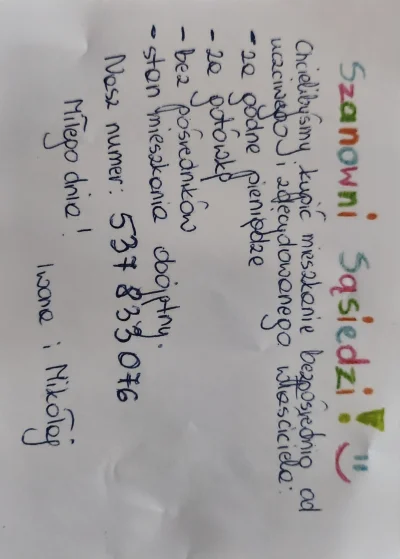 Szanowni Sąsiedzi!
Chcielibyśmy kupić mieszkanie bezpośrednio od
uczciwego i zdecydowanego właściciela:
- za godne pieniądze
- za gotówkę
- bez pośredników
- stan mieszkania dowolny.
Nasz numer: 537 833 076
Miłego dnia!
Iwona i Mikołaj